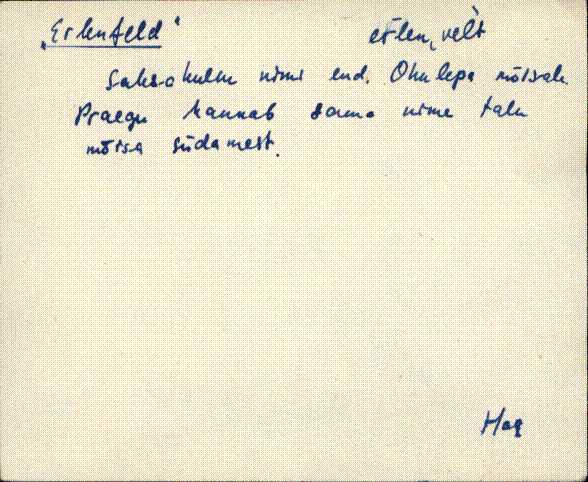 „Erlenfeld“ eŕlen͵velt
Saksakulm nimi end. Ohulepa mõisale.
Praegu kannab sama nime talu
mõisa südamest.
Hag